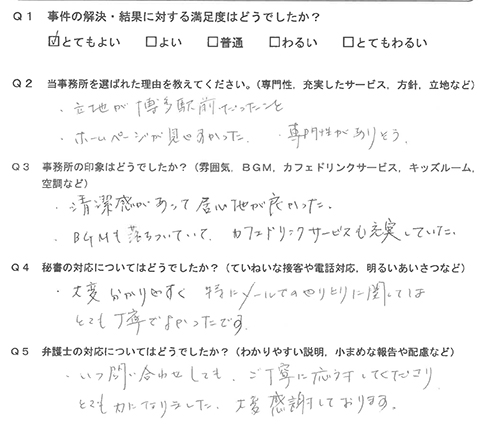 Q1 事件の解決・結果に対する満足度はどうでしたか？
☑とてもよい □よい □普通 □わるい □とてもわるい
Q2 当事務所を選ばれた理由を教えてください。（専門性，充実したサービス，方針，立地など）
・立地が博多駅前だったこと
・ホームページが見やすかった. ・専門性がありそう.
Q3 事務所の印象はどうでしたか？（雰囲気，BGM，カフェドリンクサービス，キッズルーム，
空調など）
・清潔感があって居心地が良かった.
・BGMも落ちついていて. カフェドリンクサービスも充実していた.
Q4 秘書の対応についてはどうでしたか？（ていねいな接客や電話対応，明るいあいさつなど）
・大変分かりやすく 特にメールでのやりとりに関しては
とても丁寧でよかったです.
Q5 弁護士の対応についてはどうでしたか？（わかりやすい説明，小まめな報告や配慮など）
・いつ問い合わせしても. ご丁寧に応対してくださり
とても力になりました. 大変感謝しております.